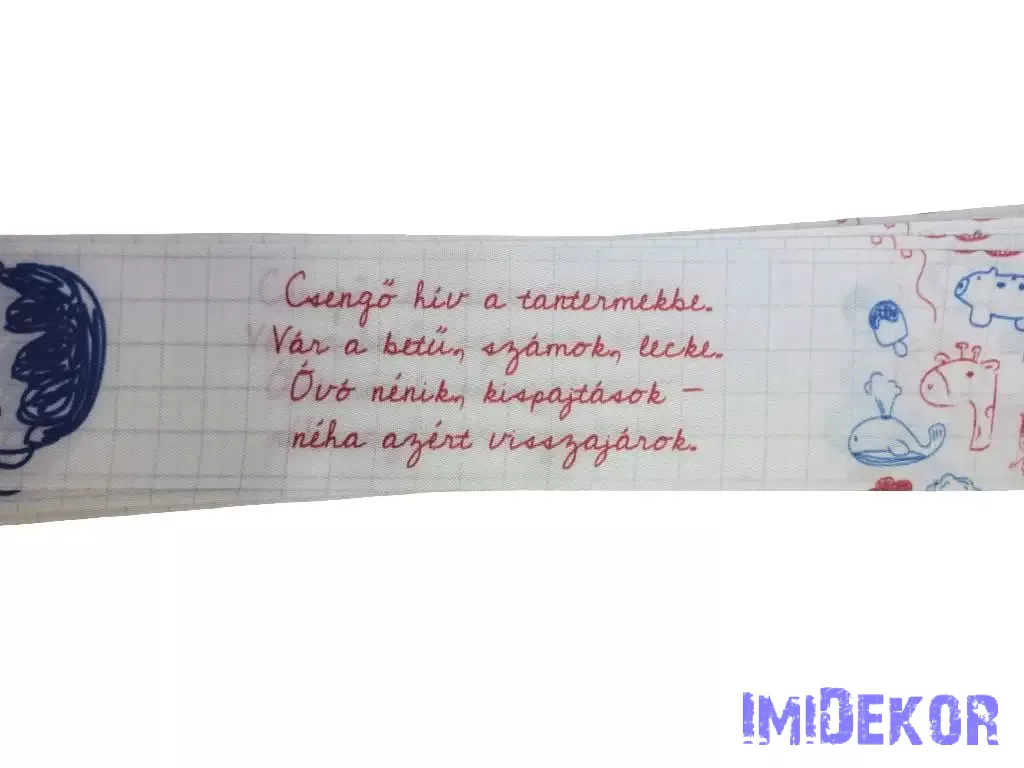 Csengő hív a tantermekbe.
Vár a betű, számok, lecke.
Óvó nénik, kispajtások –
néha azért visszajárok.
IMIDEKOR